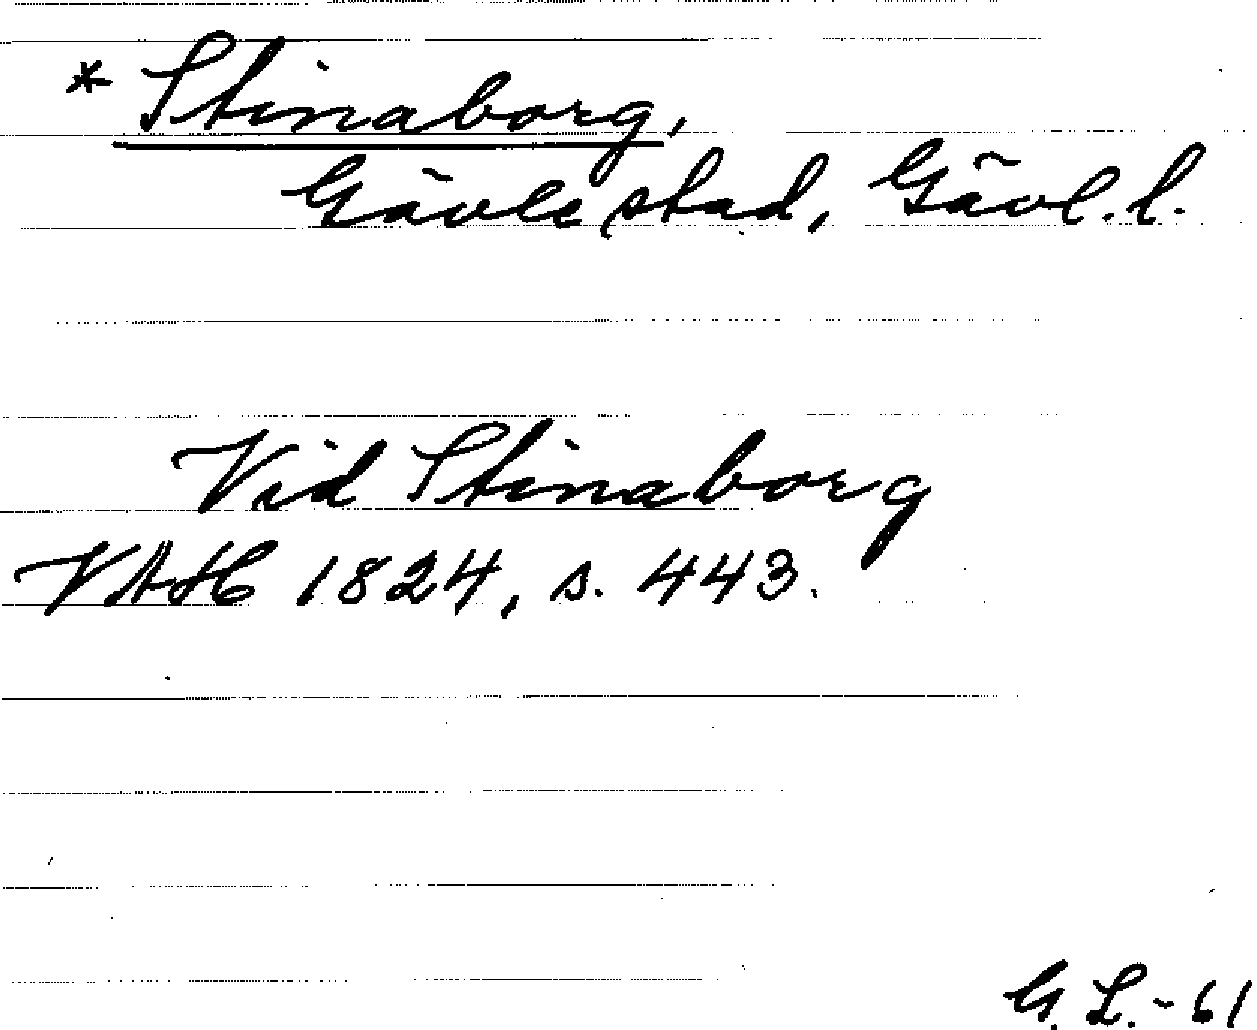 * Stinaborg,
Gävle stad, Gävl. l.
Vid Stinaborg
VAH 1824, s. 443.
G. L. - 61